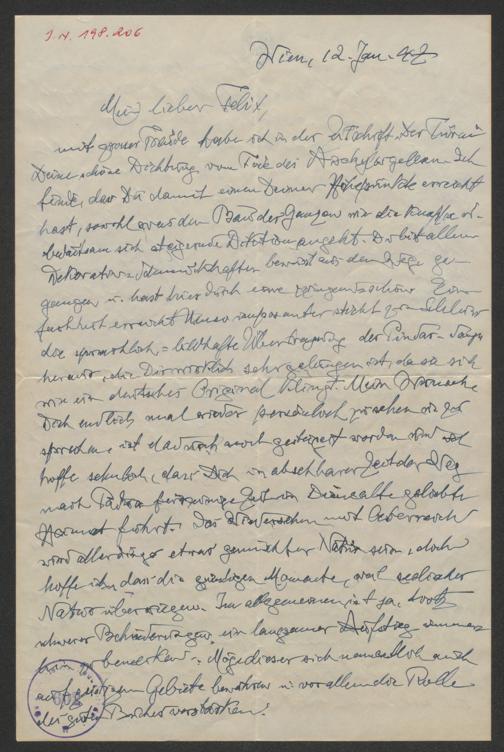 J.N. 198.206
Wien, 12. Jan. 47
Mein lieber Felix,
mit grosser Freude habe ich in der Zeitschrift Der Turm
Deine schöne Dichtung vom Tode des Aeschylos gelesen. Ich
finde, dass Du damit einen Deiner Höhepunkte erreicht
hast, sowohl was den Bau des Ganzen wie die knappe
sich steigernde Diktion angeht. Du bist allem
bewusst aus dem Wege ge-
gangen u. hast hier durch eine schöne Ein-
fachheit erreicht. sticht zum Schluss
die sprachlich = bildhafte Übertragung der Pindar-
hervor, die Dir wirklich sehr gelungen ist, da sie sich
wie ein deutsches Original klingt. Mein Wunsch
Dich endlich mal wieder persönlich zu sehen u. zu
sprechen, ist dadurch noch gesteigert worden und
hoffe sehnlich, dass Dich in absehbarer Zeit der Weg
nach in Deine alte geliebte
Heimat führt. Das Wiedersehen mit Oesterreich
wird allerdings etwas gemischter Natur sein, doch
hoffe ich, dass die Momente, weil seelischer
Natur überwiegen. Im allgemeinen ist ja, trotz
schwerer Behinderungen, ein langsamer Aufstieg
zu bemerken. Möge dieser sich namentlich auch
auf geistigem Gebiete bewähren u. vor allem die Rolle
des guten Buches verstärken!